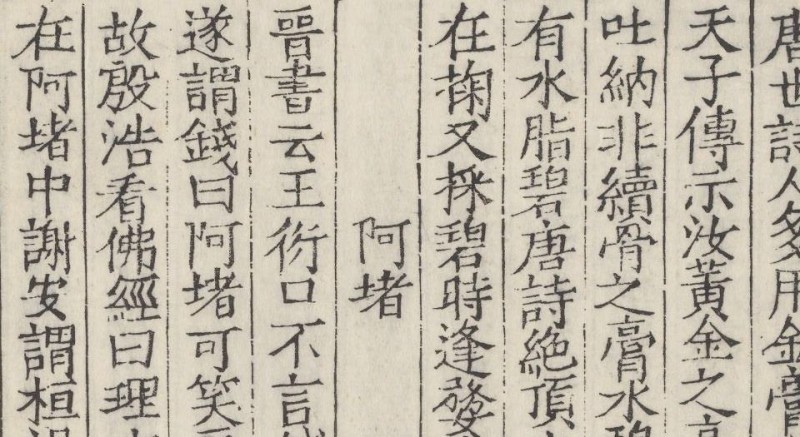 唐世詩人多用金膏
天子傳示汝黃金之膏
吐納非續骨之膏水碧
有水脂碧唐詩絶頂
在掬又採碧時逢發
阿堵
晉書云王衍口不言錢
遂謂錢曰阿堵可笑
故殷浩看佛經曰理
在阿堵中謝安謂桓溫